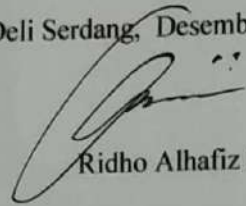 Deli Serdang, Desemb
Ridho Alhafiz